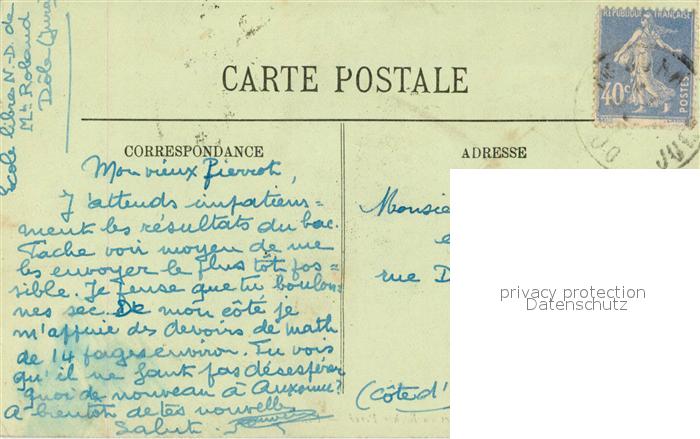 École libre N-D. de
Mt Roland
Dôle (Jura)
RÉPUBLIQUE FRANÇAISE
40c
POSTES
CARTE POSTALE
CORRESPONDANCE
ADRESSE
Mon vieux Pierrot,
J'attends impatiem=
ment les résultats du bac.
Tache voir moyen de me
les envoyer le plus tôt pos=
sible. Je pense que tu boulon=
nes sec. De mon côté je
m'appuie des devoirs de math
de 14 pages environ. Tu vois
qu'il ne faut pas désespérer
quoi de nouveau à Auxonne?
A bientôt de tes nouvelles
Salut.
Monsie
e
rue D
(Côte d'
privacy protection
Datenschutz